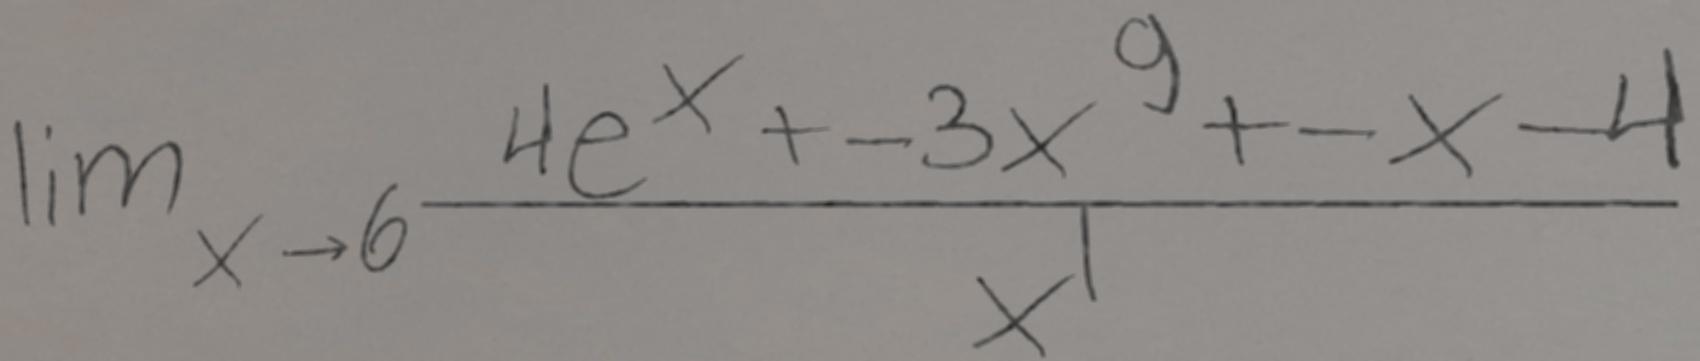 \lim_{x \to 6} \frac{4e^{x} + -3x^{9} + -x - 4}{x^{1}}